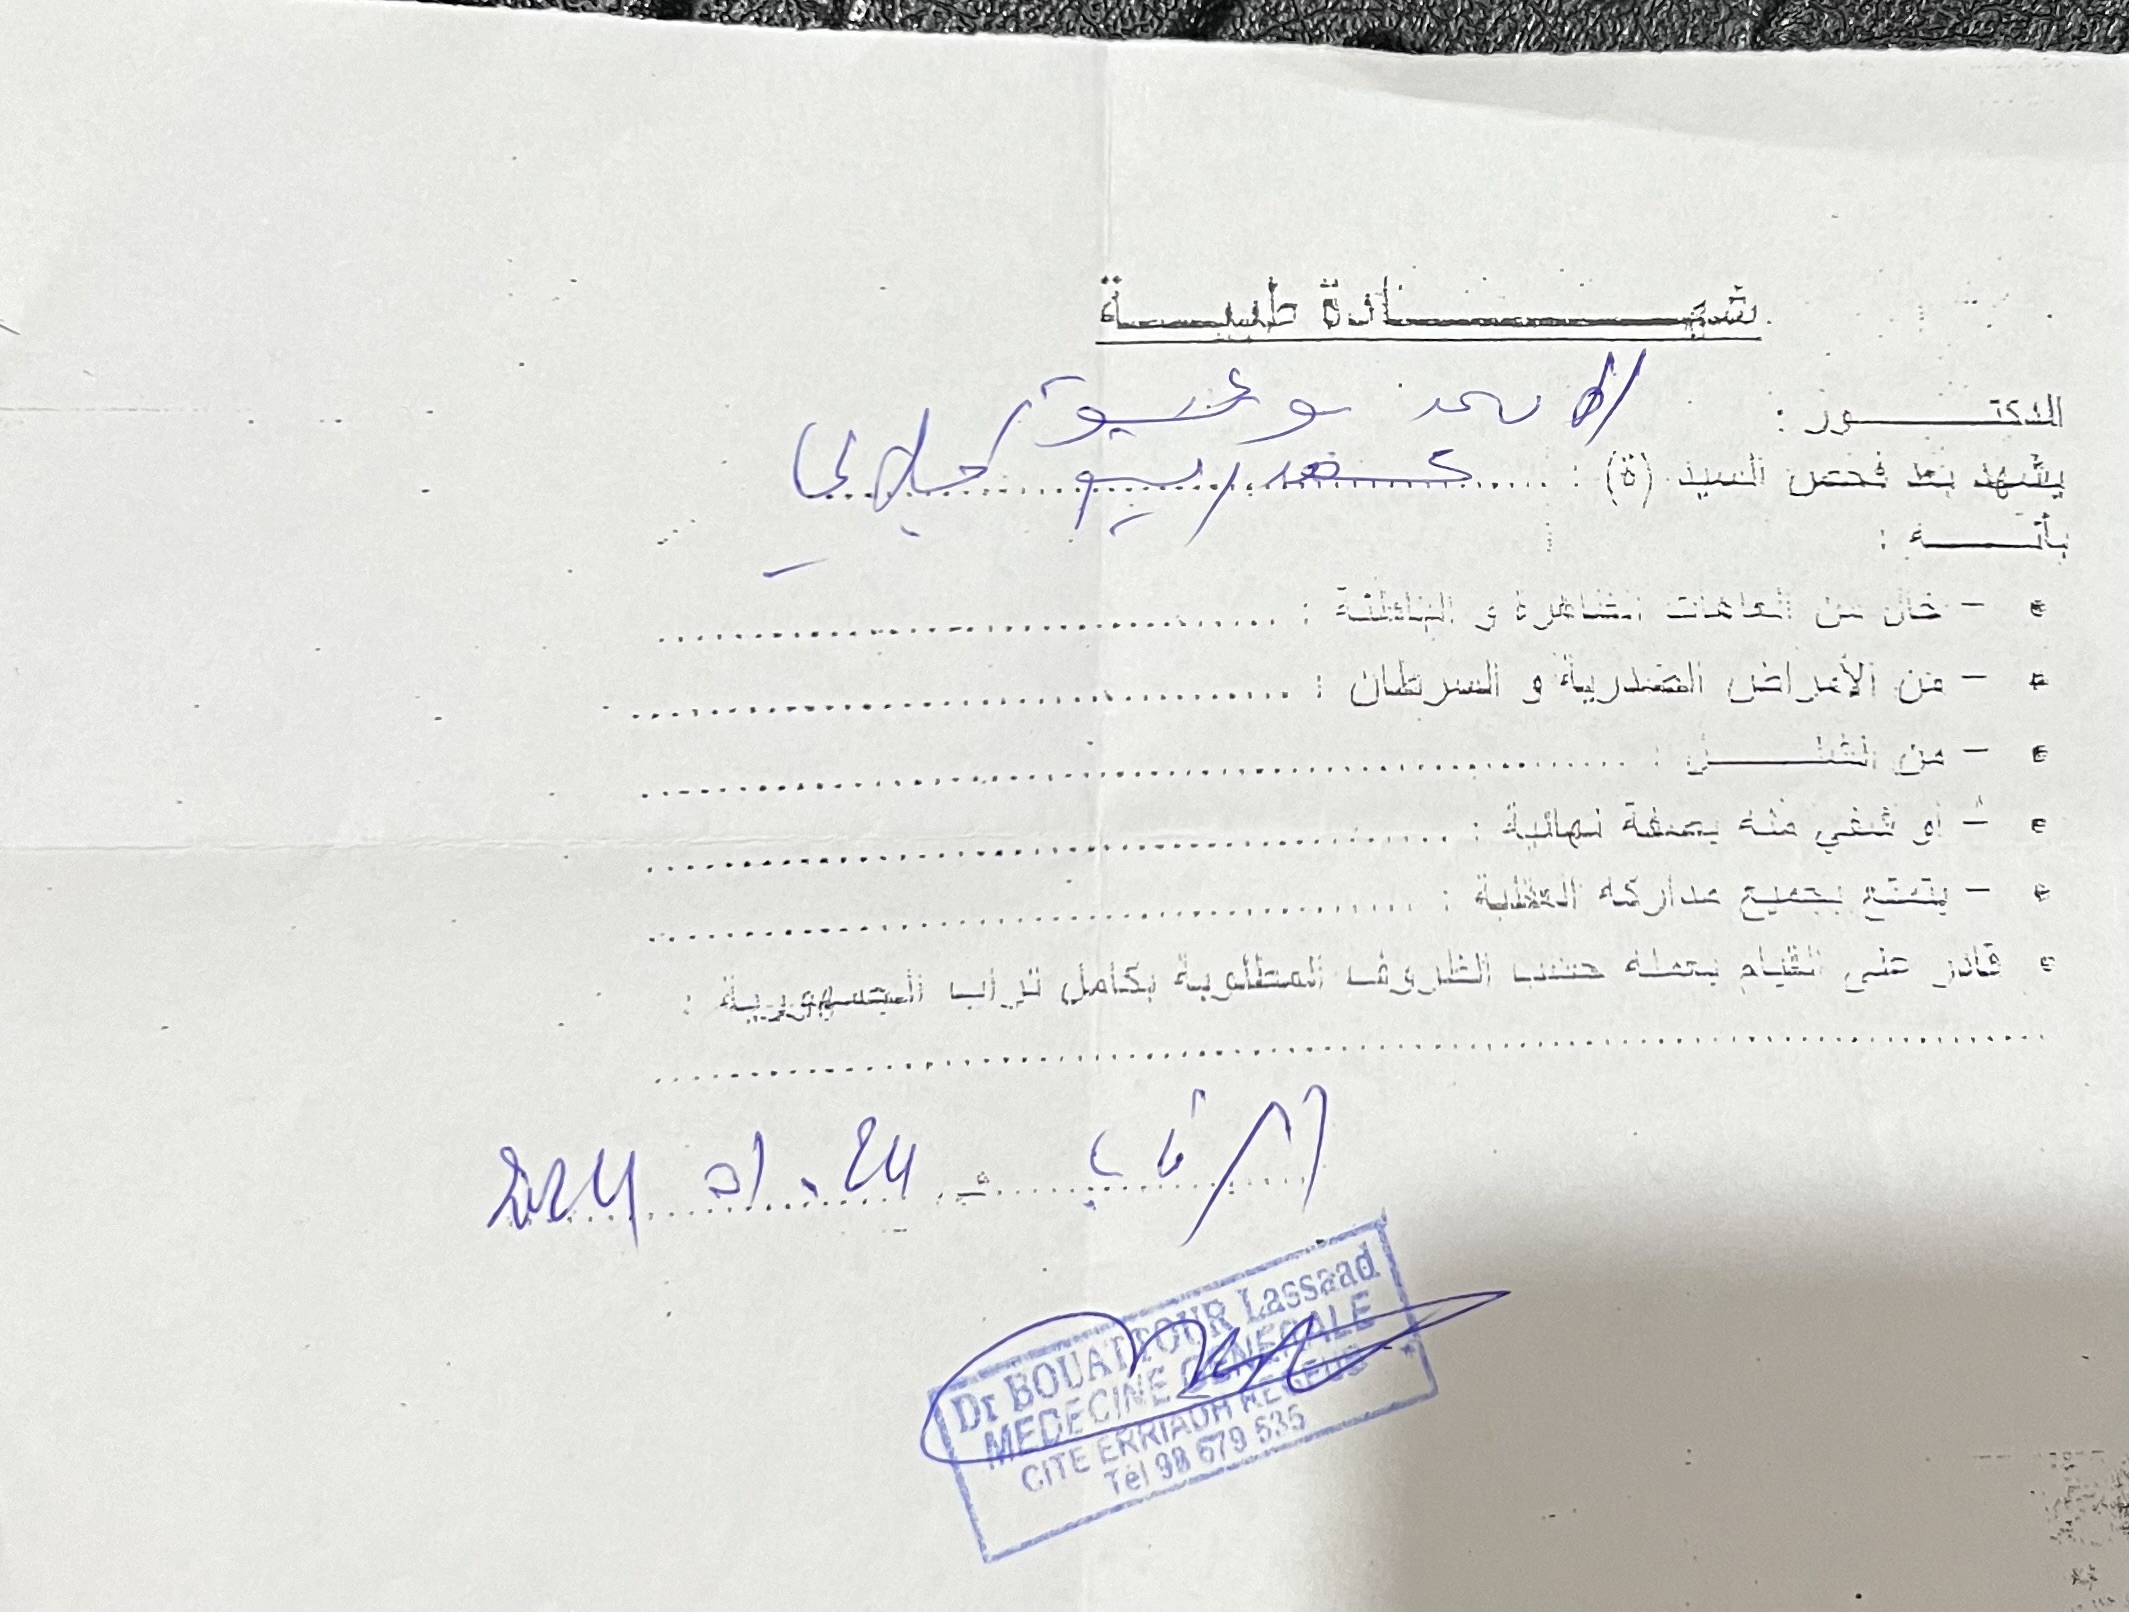 شهادة طبية
الدكتور : الأسعد بوعتور
يشهد بعد فحص السيد (ة) :
بأنه :
- خال من العاهات الظاهرة و الباطنة :
- من الأمراض الصدرية و السرطان :
- من الشلل :
- أو شفي منه بصفة نهائية :
- يتمتع بجميع مداركه العقلية :
قادر على القيام بعمله حسب الظروف المطلوبة بكامل تراب الجمهورية :
الرقاب في 24.01.2024
Dr BOUATTOUR Lassaad
MEDECINE GENERALE
CITE ERRIADH REGEUB
Tél 98 679 535